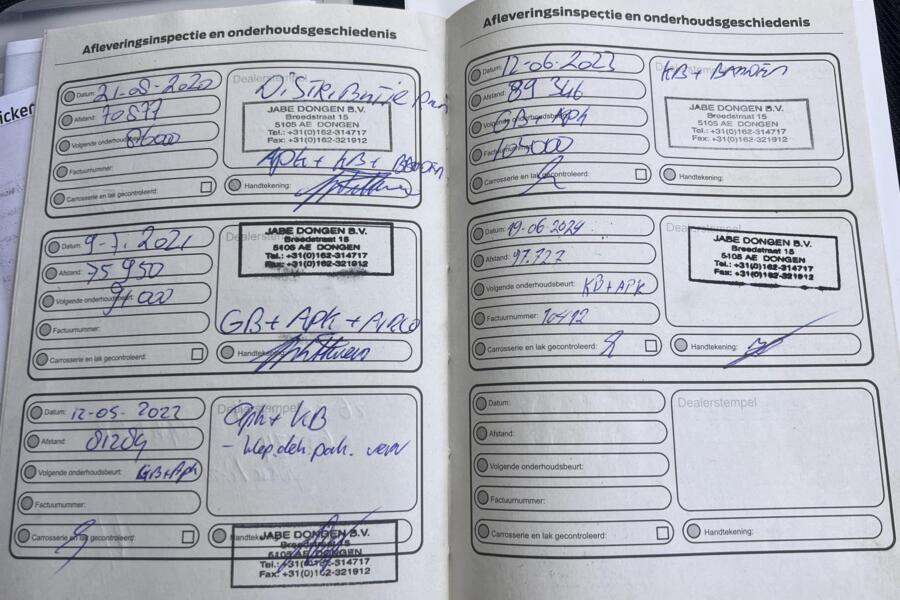 icker
Afleveringsinspectie en onderhoudsgeschiedenis
Datum: 21-08-2020
Afstand: 70877
Volgende onderhoudsbeurt: 86000
Factuurnummer:
Carrosserie en lak gecontroleerd:
Dealerstempel
DISTRIBUTIE
JABE DONGEN B.V.
Breedstraat 15
5105 AE DONGEN
Tel.: +31(0)162-314717
Fax: +31(0)162-321912
Apk + KB + BANDEN
Handtekening:
Datum: 9-7-2021
Afstand: 75950
Volgende onderhoudsbeurt: 91000
Factuurnummer:
Carrosserie en lak gecontroleerd:
Dealerstempel
JABE DONGEN B.V.
Breedstraat 15
5105 AE DONGEN
Tel.: +31(0)162-314717
Fax: +31(0)162-321912
GB + Apk + AIRCO
Handtekening:
Datum: 12-05-2022
Afstand: 81284
Volgende onderhoudsbeurt: GB+Apk
Factuurnummer:
Carrosserie en lak gecontroleerd:
Dealerstempel
Apk + KB
Handtekening:
JABE DONGEN B.V.
Breedstraat 15
5105 AE DONGEN
Tel.: +31(0)162-314717
Fax: +31(0)162-321912
Afleveringsinspectie en onderhoudsgeschiedenis
Datum: 12-06-2023
Afstand: 89346
Volgende onderhoudsbeurt: GB + Apk
Factuurnummer: 105000
Carrosserie en lak gecontroleerd:
Dealerstempel
KB + BANDEN
JABE DONGEN B.V.
Breedstraat 15
5105 AE DONGEN
Tel.: +31(0)162-314717
Fax: +31(0)162-321912
Handtekening:
Datum: 19-06-2024
Afstand: 97.727
Volgende onderhoudsbeurt: KB+APK
Factuurnummer: 10412
Carrosserie en lak gecontroleerd:
Dealerstempel
JABE DONGEN B.V.
Breedstraat 15
5105 AE DONGEN
Tel.: +31(0)162-314717
Fax: +31(0)162-321912
Handtekening:
Datum:
Afstand:
Volgende onderhoudsbeurt:
Factuurnummer:
Carrosserie en lak gecontroleerd:
Dealerstempel
Handtekening: